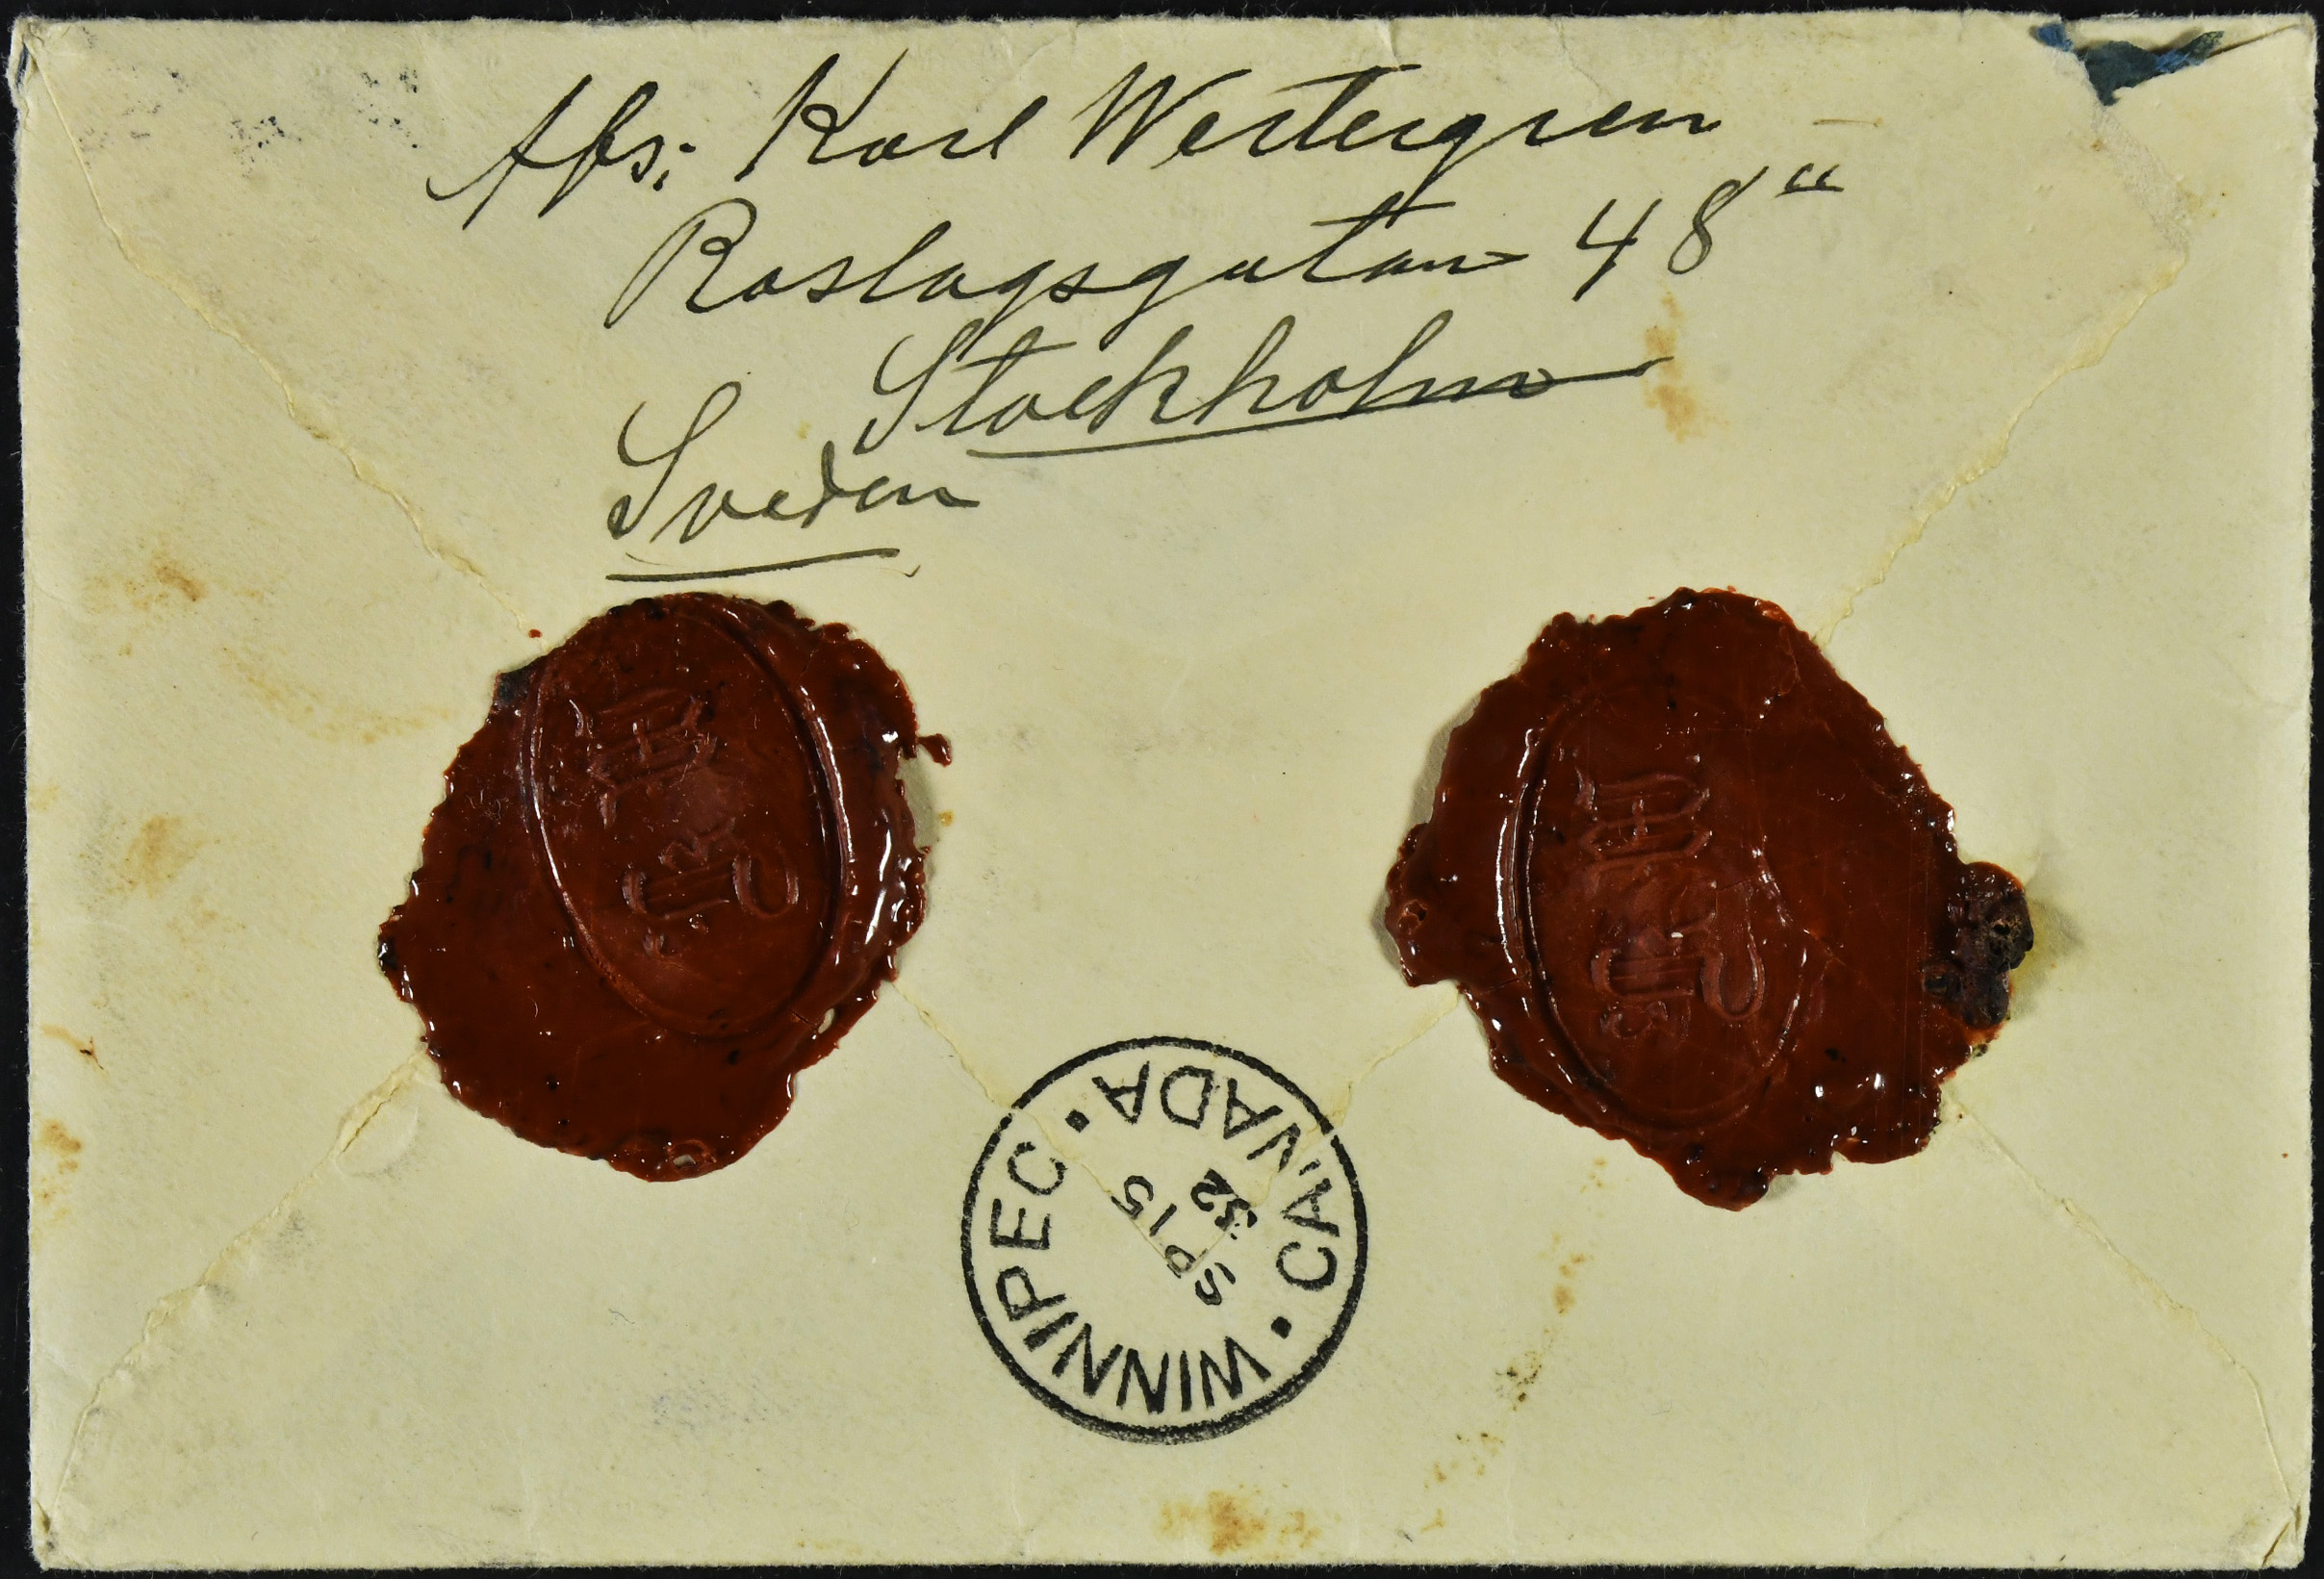 Afs: Karl Westergren
Roslagsgatan 48"
Stockholm
Sveden
WINNIPEG · CANADA ·
SP 15
32